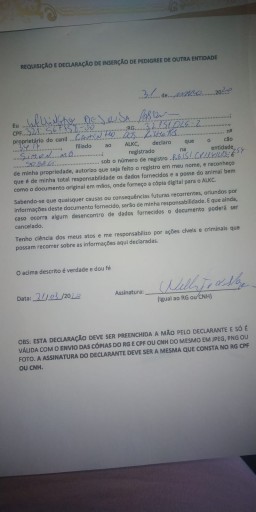 REQUISIÇÃO E DECLARAÇÃO DE INSERÇÃO DE PEDIGREE DE OUTRA ENTIDADE
31 de
Eu
CPF RG
proprietário do canil o
filiado ao ALKC, declaro que o cão
registrado na entidade
sob o número de registro
de minha propriedade, autorizo que seja feito o registro em meu nome, e reconheço
que é de minha total responsabilidade os dados fornecidos e a posse do animal bem
como o documento original em mãos, onde forneço a cópia digital para o ALKC.
Sabendo-se que quaisquer causas ou consequências futuras recorrentes, oriundos por
informações deste documento fornecido, serão de minha responsabilidade. E que ainda,
caso ocorra algum desencontro de dados fornecidos o documento poderá ser
cancelado.
Tenho ciência dos meus atos e me responsabilizo por ações cíveis e criminais que
possam recorrer sobre as informações aqui declaradas.
O acima descrito é verdade e dou fé
Data: Assinatura:
(igual ao RG ou CNH)
OBS: ESTA DECLARAÇÃO DEVE SER PREENCHIDA A MÃO PELO DECLARANTE E SÓ É
VÁLIDA COM O ENVIO DAS CÓPIAS DO RG E CPF OU CNH DO MESMO EM JPEG, PNG OU
FOTO. A ASSINATURA DO DECLARANTE DEVE SER A MESMA QUE CONSTA NO RG CPF
OU CNH.